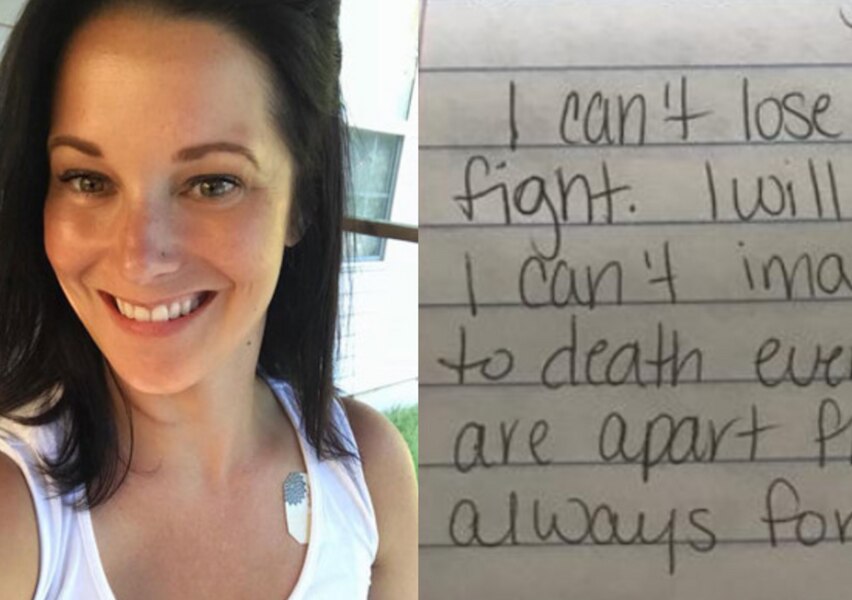 I can't lose
fight. I will
I can't ima
to death eve
are apart
always for